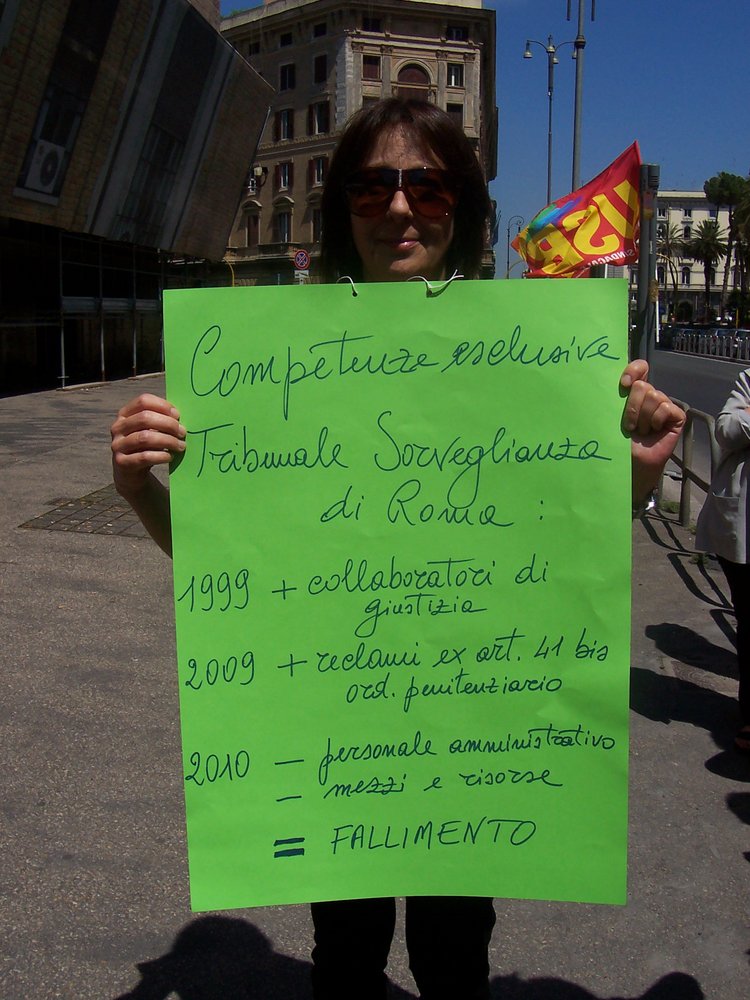 Competenze esclusive
Tribunale Sorveglianza
di Roma :
1999 + collaboratori di
giustizia
2009 + reclami ex art. 41 bis
ord. penitenziario
2010 – personale amministrativo
– mezzi e risorse
= FALLIMENTO